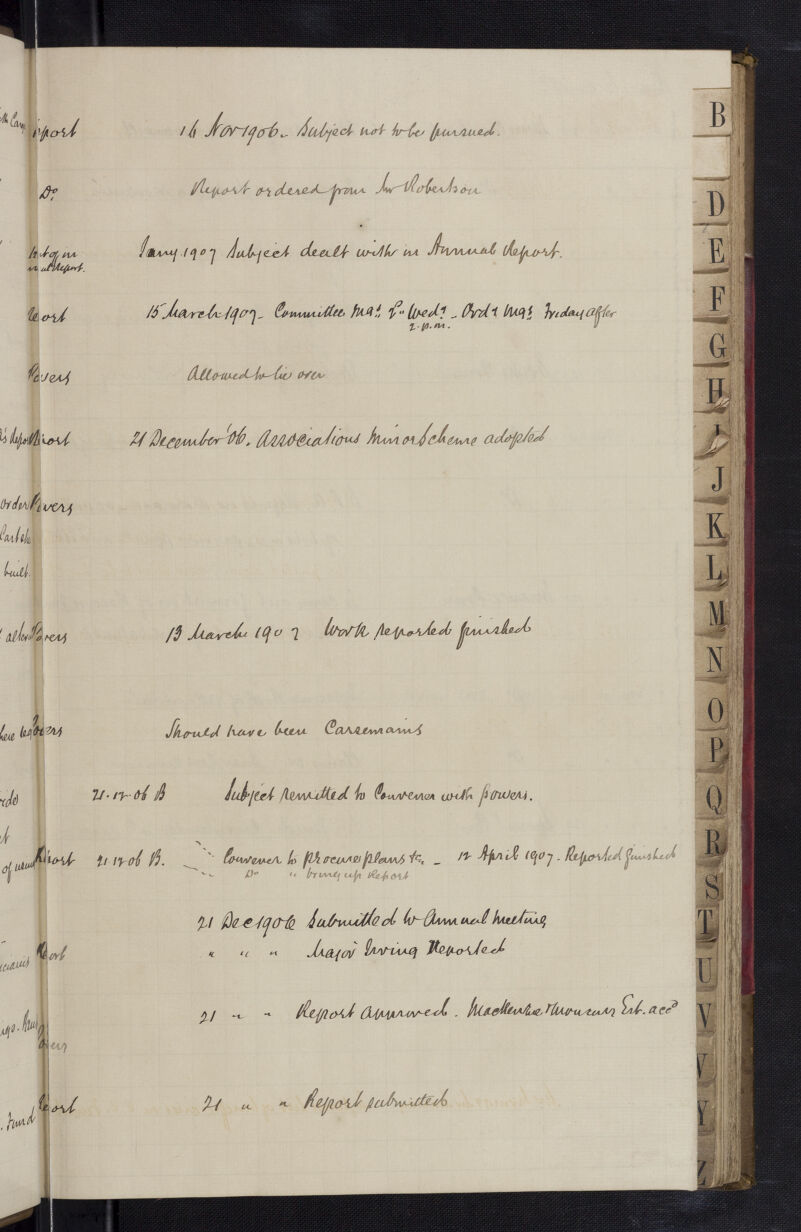 16 Nov 1906. Subject not to be pursued.
Do
Report ordered from Mr Robertson
Jany. 1907 Subject dealt with in Annual Report.
15 March 1907 - Committee Mgs. 2nd Wedy - Ordy Mgs Friday after
2. p.m.
Allowed to lie over
21 December '06. Associations Minor Scheme adopted
built.
13 March 1907 Work reported finished
Should have been Carsemains
21-12-06 B Subject remitted to Convener with powers.
21 12 06 B. Convener to procure plans &c. - 12 April 1907 - Reported finished
Do " bring up Report
21 Dec 1906 Submitted to Annual Meeting
" " " Major Irving Reported
21 " " Report approved. Mackenzie & Moncur's Est. accd
21 " " Report submitted
B
D
E
F
G
H
I
J
K
L
M
N
O
P
Q
R
S
T
U
V
Y
Z